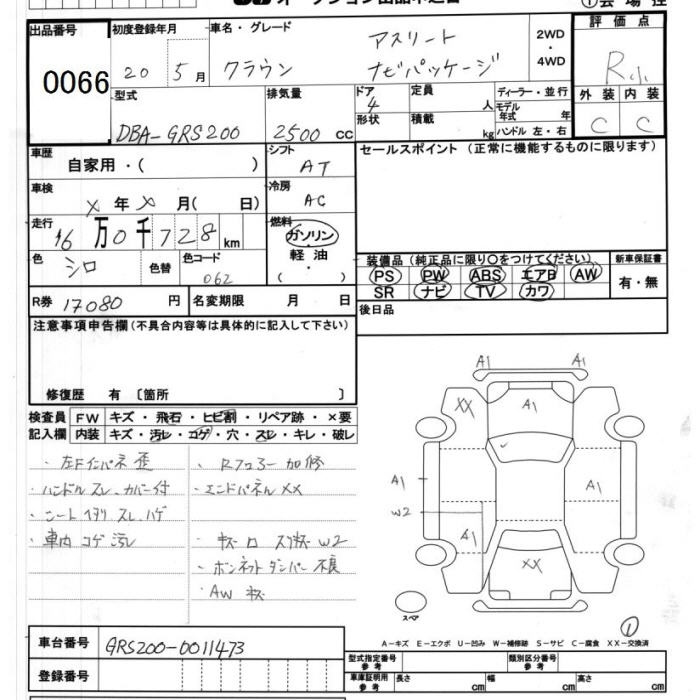 出品番号 初度登録年月 車名・グレード 2WD・4WD 評価点
0066 20 5月 クラウン アスリート ナビパッケージ R
型式 排気量 ドア 定員 ディーラー・並行 外装 内装
DBA-GRS200 2500cc 4 人 モデル年式 年 C C
形状 積載 kg ハンドル 左・右
車歴 シフト セールスポイント (正常に機能するものに限ります)
自家用・( ) AT
車検 冷房
X年X月( 日) AC
走行 燃料
16万0千728km ガソリン
色 色替 色コード 軽油 装備品 (純正品に限り○をつけてください) 新車保証書
シロ 062 ・( ) PS PW ABS エアB AW 有・無
R券 17080円 名変期限 月 日 SR ナビ TV カワ
注意事項申告欄(不具合内容等は具体的に記入して下さい) 後日品
修復歴 有 〔箇所 〕
検査員 FW キズ・飛石・ヒビ割・リペア跡・×要
記入欄 内装 キズ・汚レ・コゲ・穴・スレ・キレ・破レ
・左Fインパネ歪
・ハンドルスレ、カバー付
・シートヘタリ スレ、ハゲ
・車内 コゲ 汚レ
・Rフロアー加修
・エンドパネルXX
・ボンネットダンパー不良
・AW キズ
A1 A1
XX A1
A1 A1
W2 A1
XX
スペア
1
A-キズ E-エクボ U-凹み W-補修跡 S-サビ C-腐食 XX-交換済
車台番号 GRS200-0011473
型式指定番号参考 類別区分番号参考
登録番号 車庫証明用参考 長さ cm 幅 cm 高さ cm